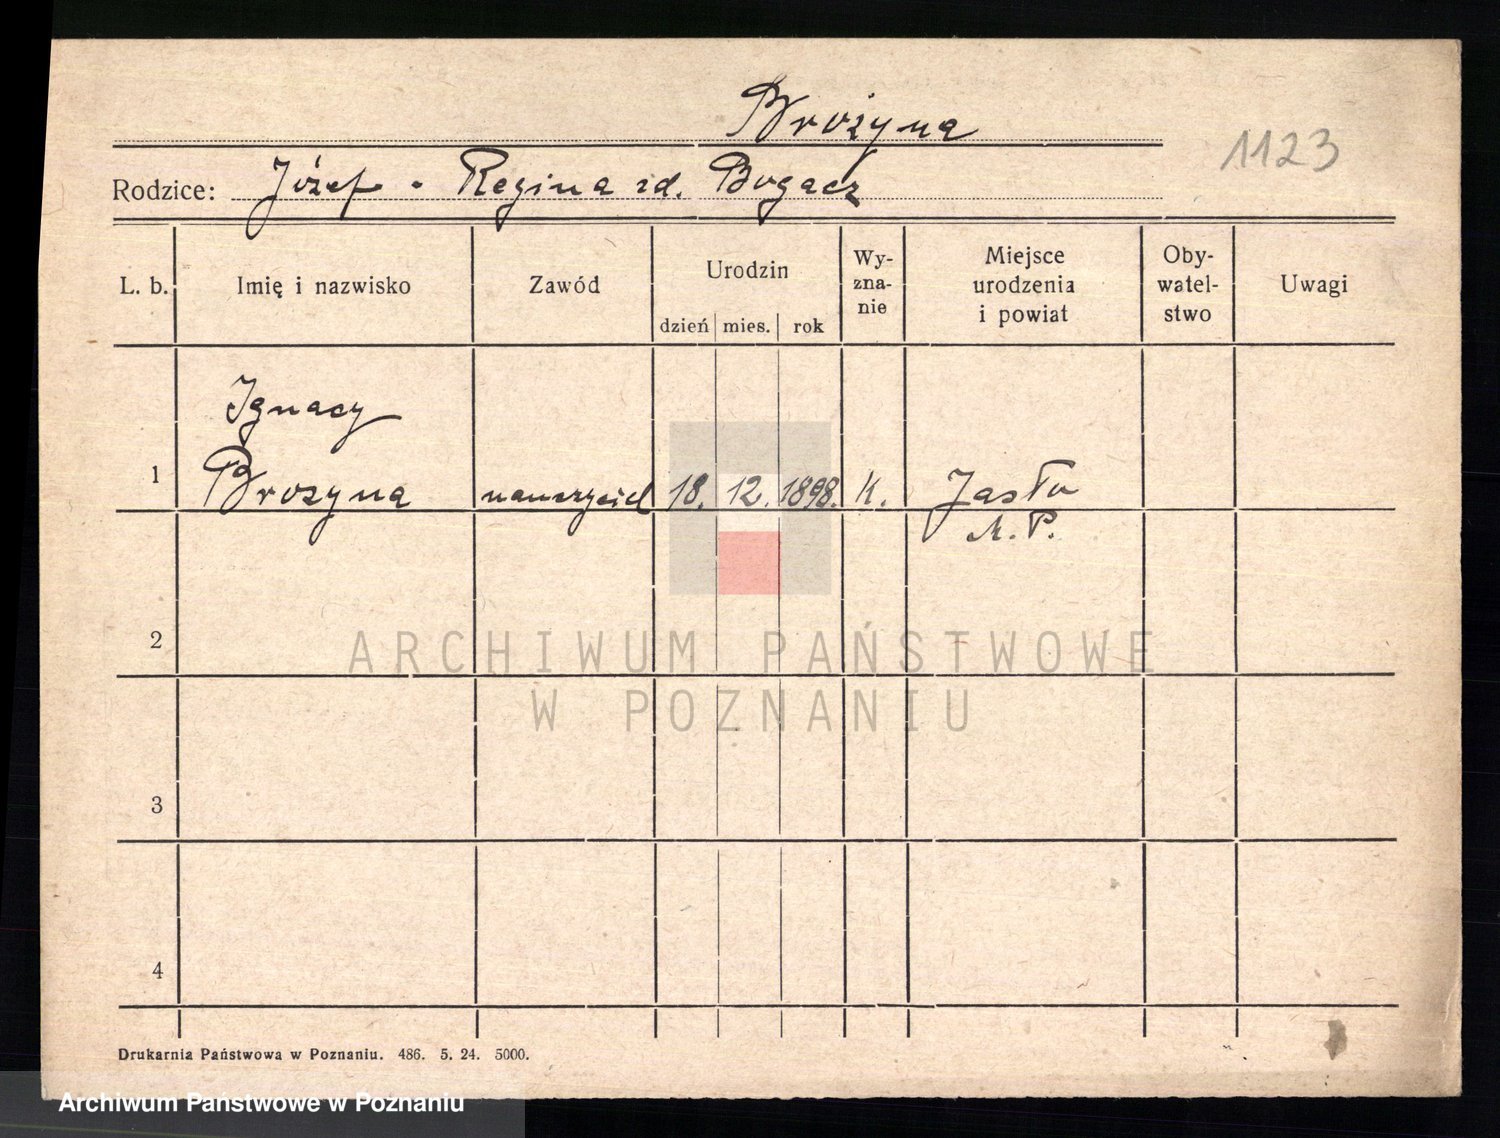 Brożyna
1123
Rodzice: Józef - Regina zd. Bogacz
L. b. Imię i nazwisko Zawód Urodzin Wy- Miejsce Oby- Uwagi
zna- urodzenia watel-
nie i powiat stwo
dzień mies. rok
Ignacy
1 Brozyna nauczyciel 18. 12. 1898. K. Jasło
M. P.
2
ARCHIWUM PAŃSTWOWE
W POZNANIU
3
4
Drukarnia Państwowa w Poznaniu. 486. 5. 24. 5000.
Archiwum Państwowe w Poznaniu